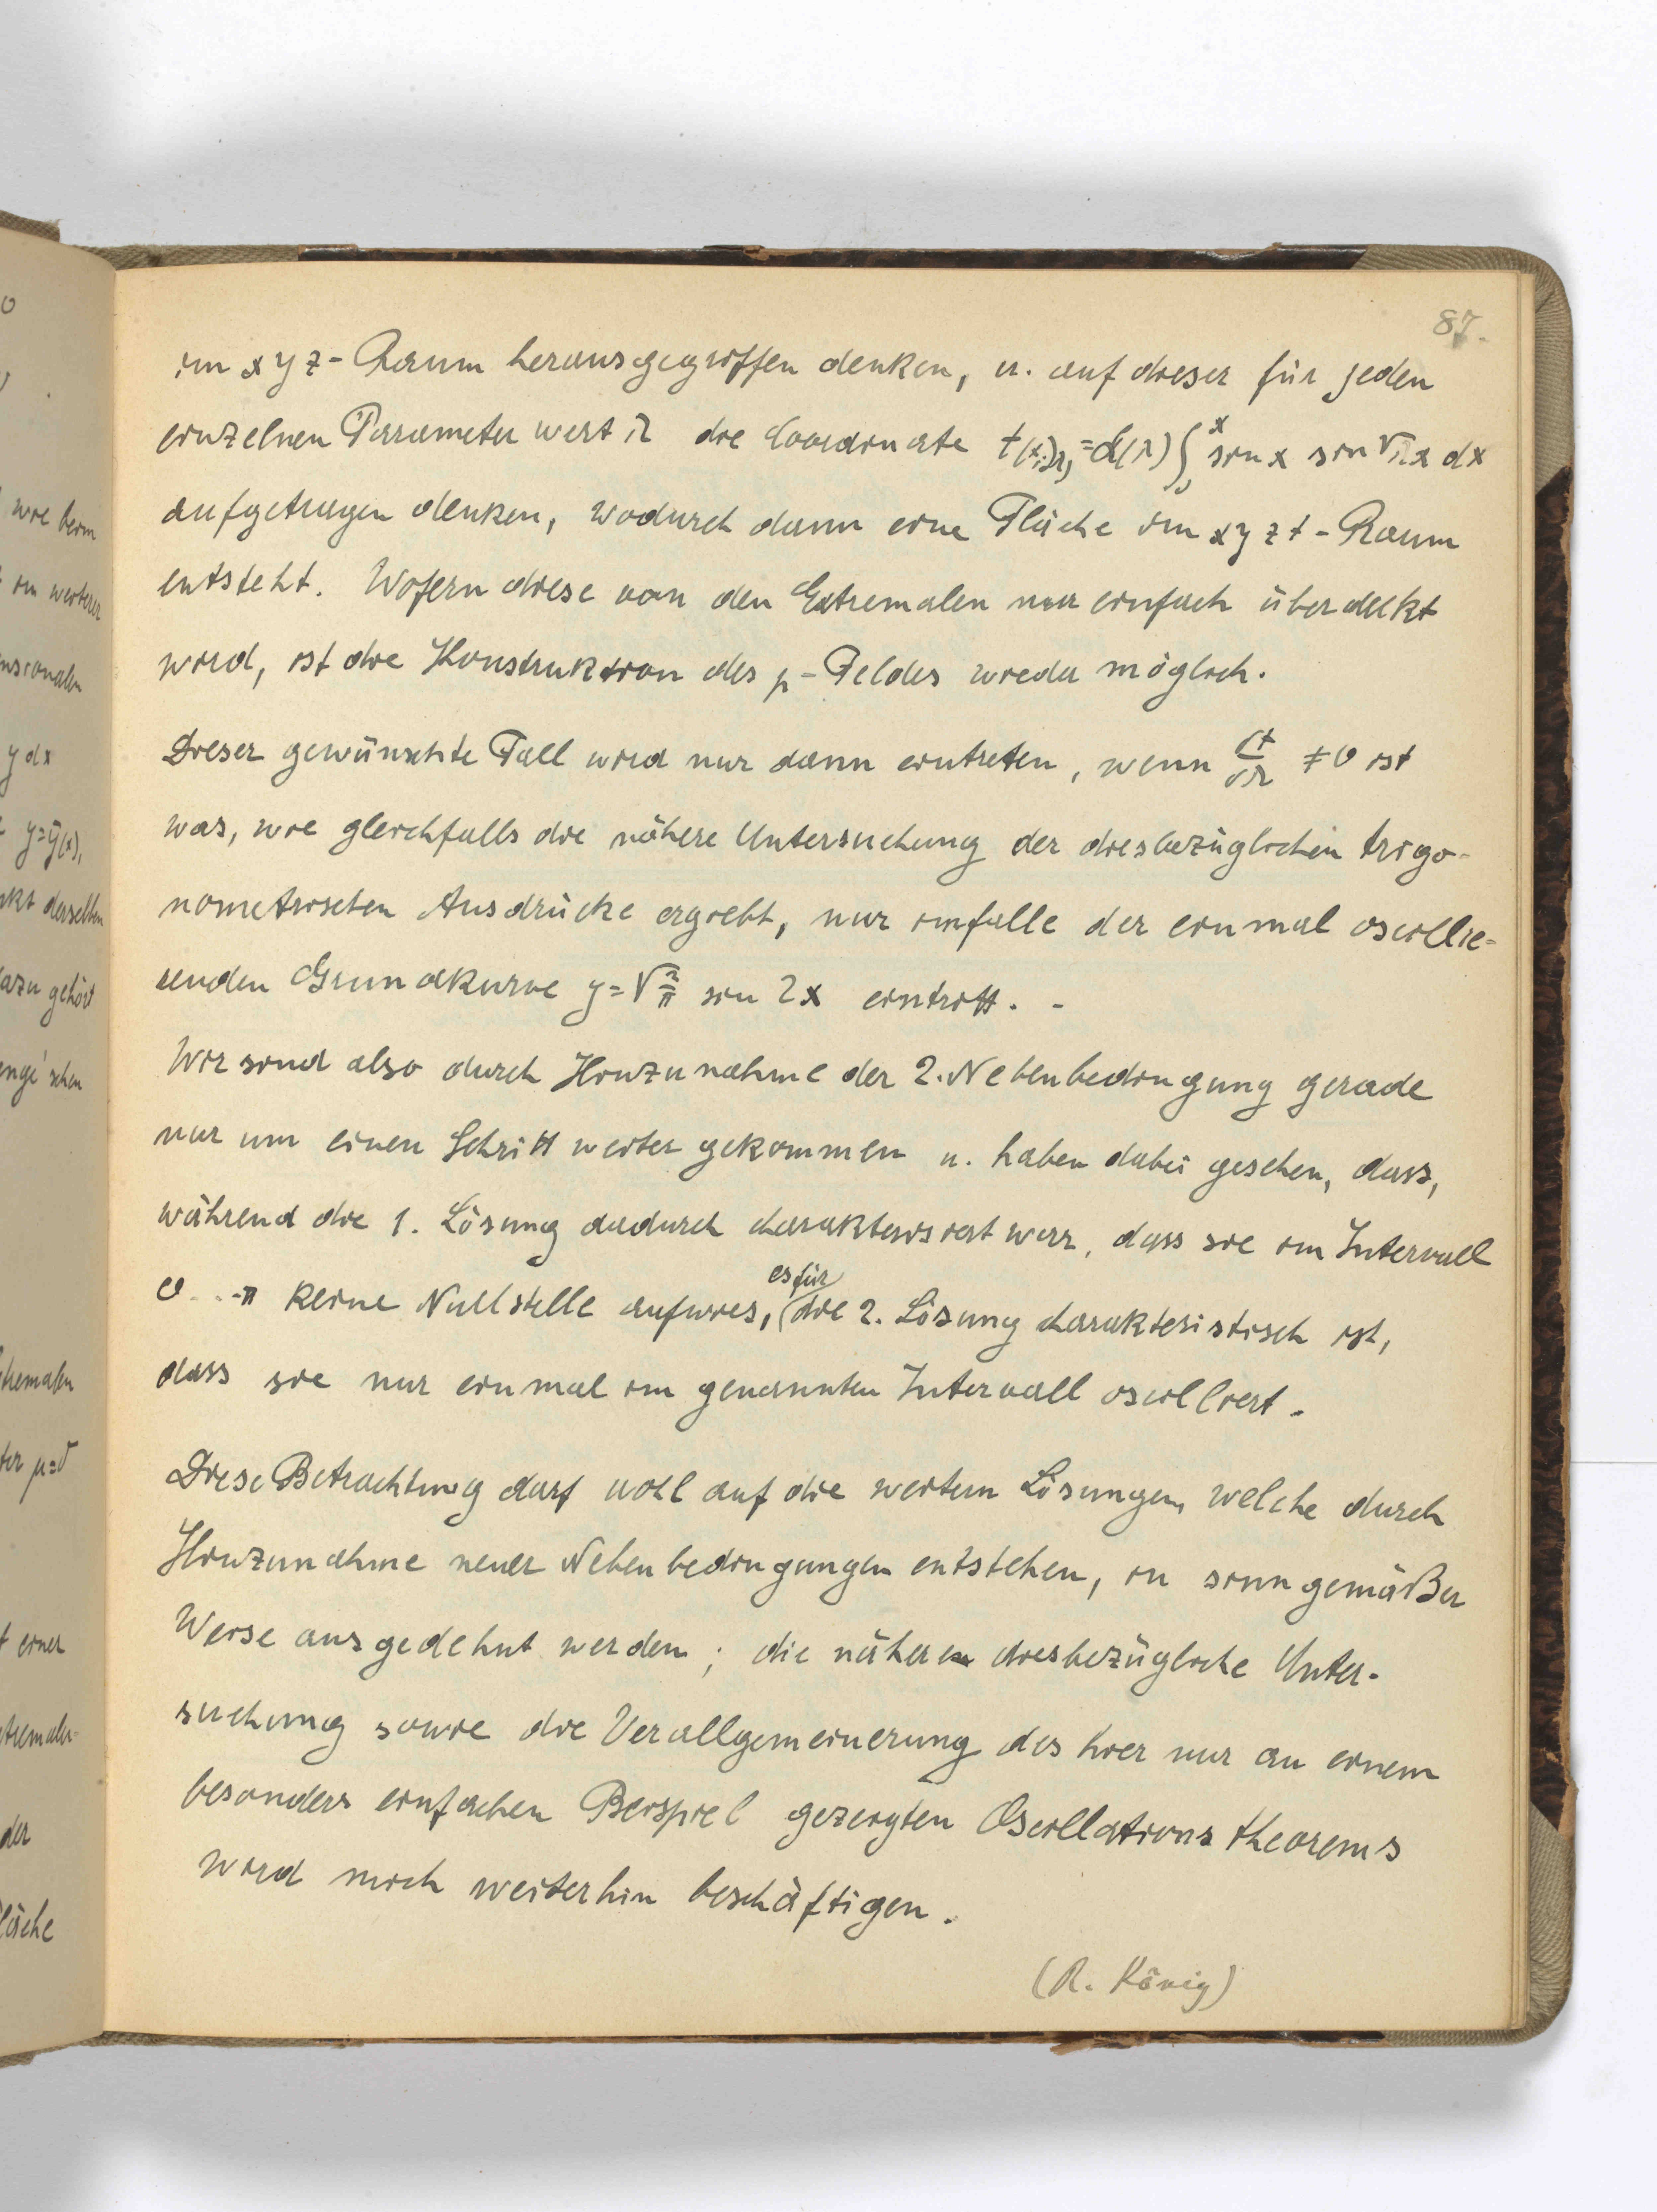 87.
im xyz-Raum herausgegriffen denken, u. auf dieser für jeden
einzelnen Parameterwert λ die Coordinate t(x;λ) = α(λ) ∫₀ˣ sin x sin √λ x dx
aufgetragen denken, wodurch dann eine Fläche im xyzt-Raum
entsteht. Wofern diese von den Extremalen nur einfach überdeckt
wird, ist die Konstruktion des p-Feldes wieder möglich.
Dieser gewünschte Fall wird nur dann eintreten, wenn ∂t/∂λ ≠ 0 ist
was, wie gleichfalls die nähere Untersuchung der diesbezüglichen trigo-
nometrischen Ausdrücke ergiebt, nur imfalle der einmal oscillie-
renden Grundkurve y = √2/π sin 2x eintritt. -
Wir sind also durch Hinzunahme der 2. Nebenbedingung gerade
nur um einen Schritt weiter gekommen u. haben dabei gesehen, dass,
während die 1. Lösung dadurch charakterisiert war, dass sie im Intervall
0...π keine Nullstelle aufwies, es für die 2. Lösung charakteristisch ist,
dass sie nur einmal im genannten Intervall oscilliert.
Diese Betrachtung darf wohl auf die weitern Lösungen, welche durch
Hinzunahme neuer Nebenbedingungen entstehen, in sinngemäßer
Weise ausgedehnt werden; die nähere diesbezügliche Unter-
suchung sowie die Verallgemeinerung des hier nur an einem
besonders einfachen Beispiel gezeigten Oscillationstheorems
wird mich weiterhin beschäftigen.
(R. König)
wie beim
im weiterer
y dx
y=ȳ(x),
derselben
dazu gehört
einer
der